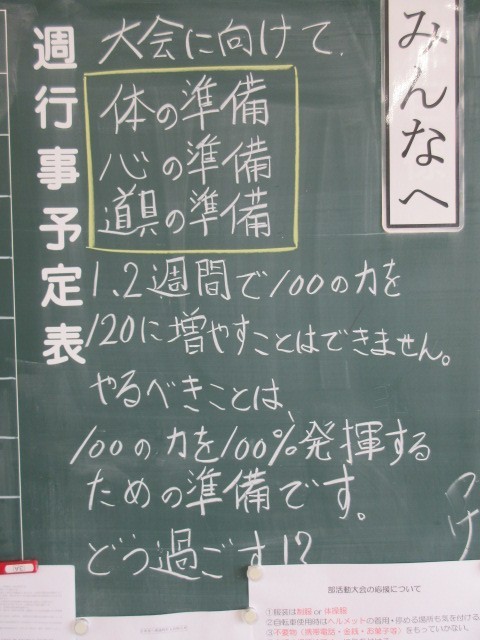 みんなへ
週行事予定表
大会に向けて、
体の準備
心の準備
道具の準備
1、2週間で100の力を
120に増やすことはできません。
やるべきことは、
100の力を100%発揮する
ための準備です。
どう過ごす!?
部活動大会の応援について
①服装は制服 or 体操服
②自転車使用時はヘルメットの着用・停める場所も気を付ける
③不要物(携帯電話・金銭・お菓子等)をもっていかない。